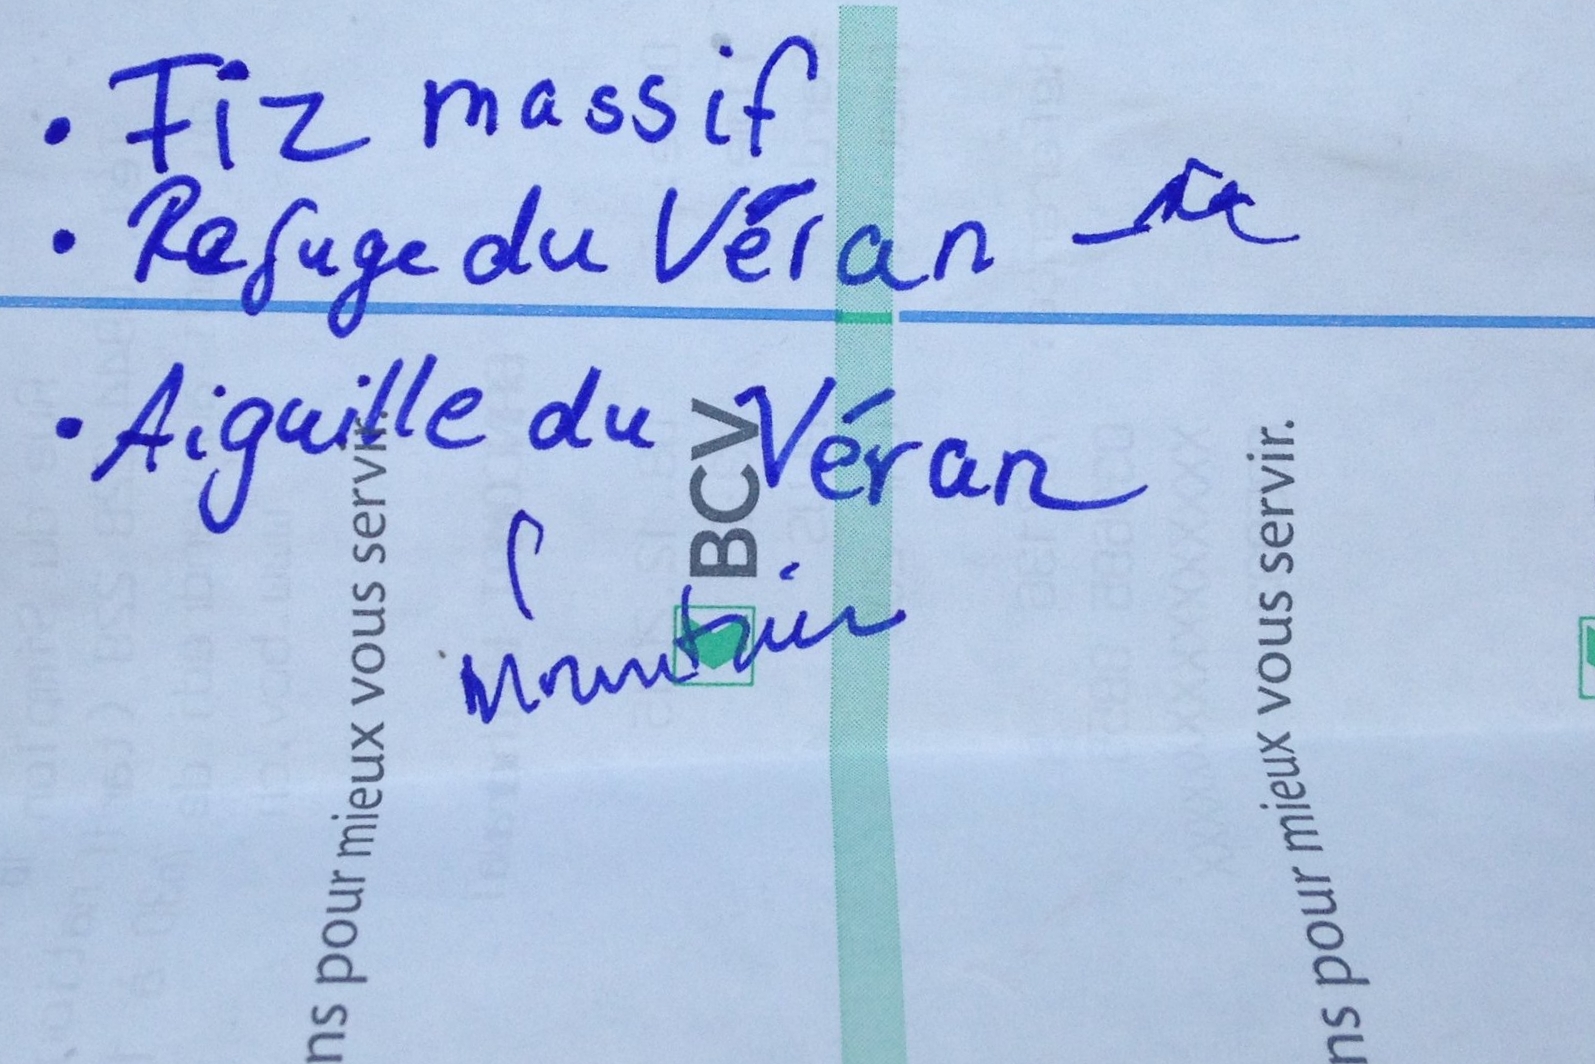 • Fiz massif
• Refuge du Véran
• Aiguille du Véran
Mountain
BCV
ns pour mieux vous servir.
ns pour mieux vous servir.